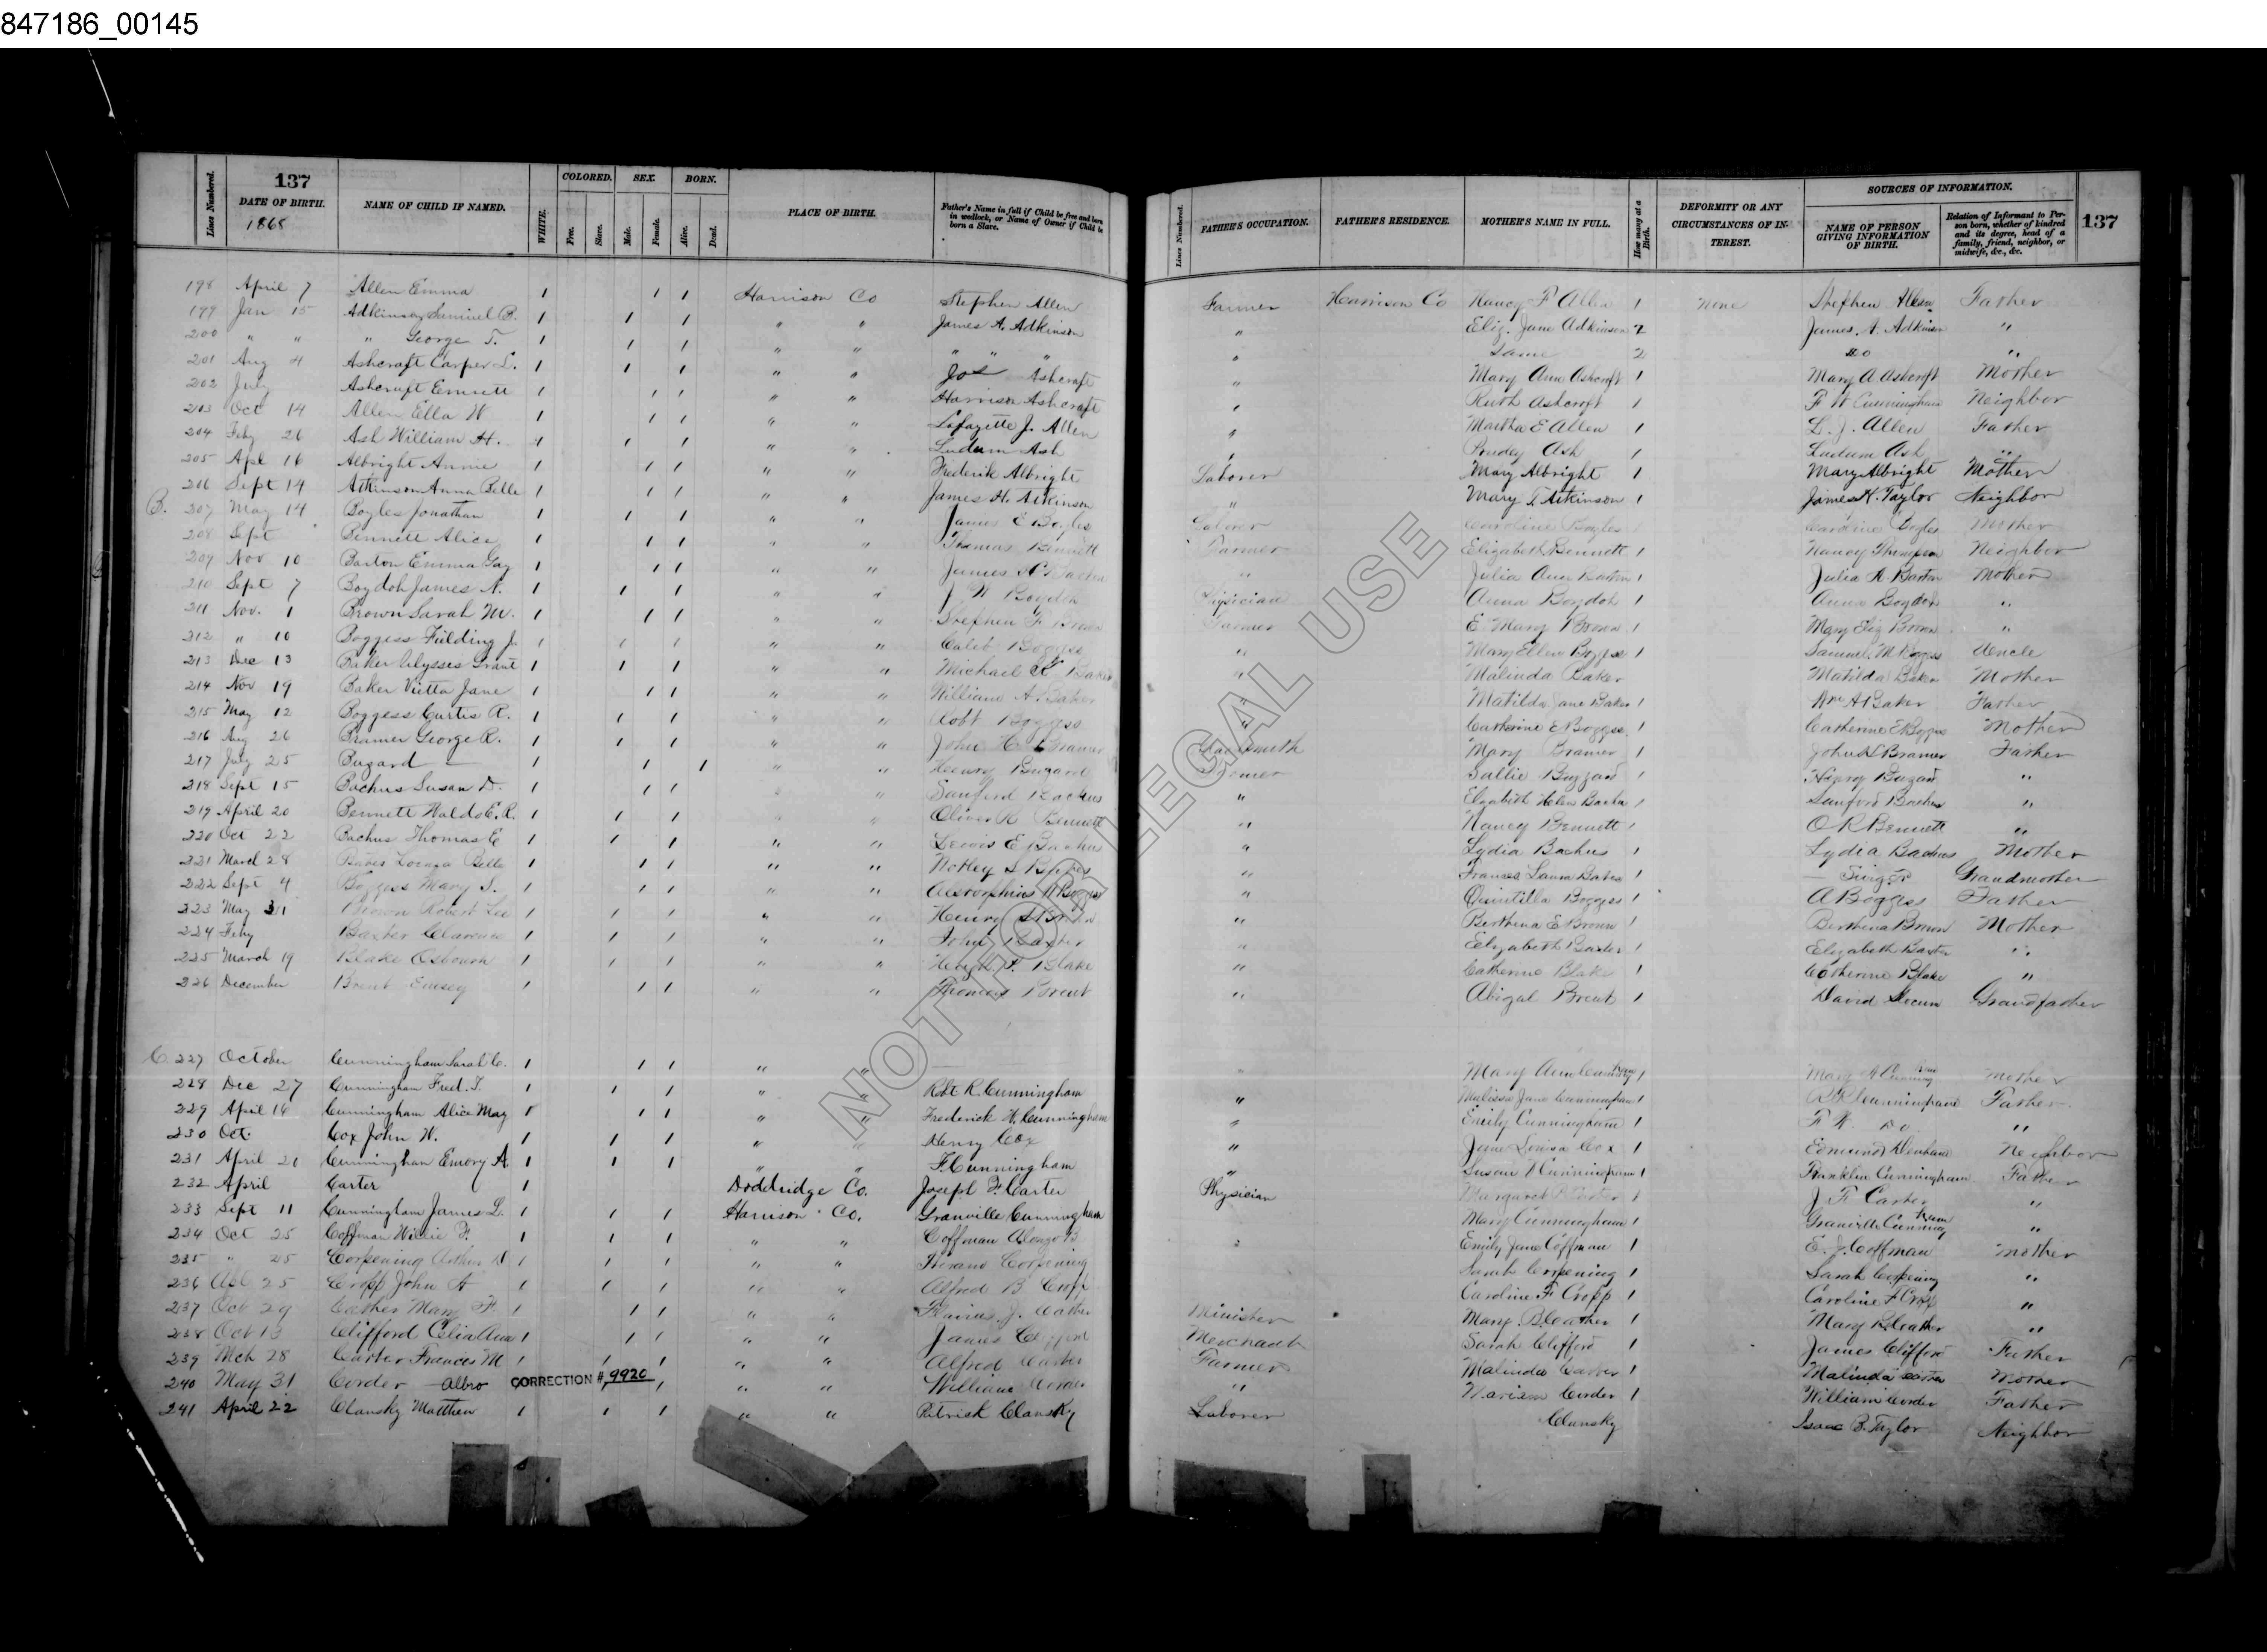 847186_00145
137
Lines Numbered.
DATE OF BIRTH.
1868
NAME OF CHILD IF NAMED.
WHITE.
COLORED.
Free.
Slave.
SEX.
Male.
Female.
BORN.
Alive.
Dead.
PLACE OF BIRTH.
Father's Name in full if Child be free and born in wedlock, or Name of Owner if Child be born a Slave.
Lines Numbered.
FATHER'S OCCUPATION.
FATHER'S RESIDENCE.
MOTHER'S NAME IN FULL.
How many at a Birth.
DEFORMITY OR ANY CIRCUMSTANCES OF INTEREST.
SOURCES OF INFORMATION.
NAME OF PERSON GIVING INFORMATION OF BIRTH.
Relation of Informant to Person born, whether of kindred and its degree, head of a family, friend, neighbor, or midwife, &c., &c.
137
198 April 7 Allen Emma 1 1 1 Harrison Co Stephen Allen Farmer Harrison Co Nancy F Allen 1 None Stephen Allen Father
199 Jan 15 Adkinson Samuel B. 1 1 1 " " James A. Adkinson " Eliz. Jane Adkinson 2 James. A. Adkinson "
200 " " " George T. 1 1 1 " " " " " " Same 2 do "
201 Aug 4 Ashcraft Carper L. 1 1 1 " " Jos Ashcraft " Mary Ann Ashcroft 1 Mary A Ashcroft Mother
202 July Ashcraft Emmett 1 1 1 " " Harrison Ashcraft " Ruth Ashcroft 1 F W Cunningham Neighbor
203 Oct 14 Allen Ella W 1 1 1 " " Lafayette J. Allen " Martha E Allen 1 L. J. Allen Father
204 Feby 26 Ash William H. 1 1 1 " " Ludum Ash " Prudey Ash 1 Ludum Ash "
205 Apl 16 Albright Annie 1 1 1 " " Frederik Albright Laborer Mary Albright 1 Mary Albright Mother
206 Sept 14 Atkinson Anna Belle 1 1 1 " " James H. Atkinson " Mary T. Atkinson 1 James H. Taylor Neighbor
B. 207 May 14 Boyles Jonathan 1 1 1 " " James E Boyles Laborer Caroline Boyles Caroline Boyles Mother
208 Sept Bennett Alice 1 1 1 " " Thomas Bennett Farmer Elizabeth Bennett 1 Nancy Neighbor
209 Nov 10 Barton Emma Gay 1 1 1 " " James " Julia Ann Barton 1 Julia A. Barton Mother
210 Sept 7 Boydoh James N. 1 1 1 " " J. W Boydoh Physician Anna Boydoh 1 Anna Boydoh "
211 Nov. 1 Brown Sarah M. 1 1 1 " " Stephen F Brown Farmer E. Mary Brown 1 Mary Eliz Brown "
212 " 10 Boggess Fielding J. 1 1 1 " " Caleb Boggess " Mary Ellen Boggess 1 Samuel M Boggess Uncle
213 Dec 13 Baker Ulysses Grant 1 1 1 " " Michael Baker " Malinda Baker Matilda Baker Mother
214 Nov 19 Baker Vietta Jane 1 1 1 " " William A. Baker Matilda Jane Baker 1 Wm A Baker Father
215 May 12 Boggess Curtis R. 1 1 1 " " Robt Boggess " Catherine E Boggess 1 Catherine E Boggess Mother
216 Aug 26 Bramer George R. 1 1 1 " " John Bramer Blacksmith Mary Bramer 1 John Bramer Father
217 July 25 Buzard — 1 1 1 " " Henry Buzard Farmer Sallie Buzzard 1 Henry Buzard "
218 Sept 15 Bachus Susan D. 1 1 1 " Sanford Bachus " Elizabeth Helen Bachus 1 Sanford Bachus "
219 April 20 Bennett Waldo E. R. 1 1 1 " " Oliver R Bennett " Nancy Bennett 1 O R Bennett "
220 Oct 22 Bachus Thomas E 1 1 1 " " Lewis E Bachus " Lydia Bachus 1 Lydia Bachus Mother
221 March 28 Bates Belle 1 1 1 " " Notley " Frances Laura Bates 1 — Grandmother
222 Sept 4 Boggess Mary S. 1 1 1 " " Boggess " Quintilla Boggess 1 A Boggess Father
223 May 31 Brown Robert Lee 1 1 1 " " Henry " Berthena E Brown 1 Berthena Brown Mother
224 Feby Baxter Clarence 1 1 1 " " John Baxter " Elizabeth Baxter 1 Elizabeth Baxter "
225 March 19 Blake Osbourn 1 1 1 " " Blake " Catherine Blake 1 Catherine Blake "
226 December Brent 1 1 1 " " Thomas Brent " Abigal Brent 1 David Grandfather
C. 227 October Cunningham Sarah C. 1 1 1 " " Mary Ann Cunningham 1 Mary A Cunningham Mother
228 Dec 27 Cunningham Fred. T. 1 1 1 " " Robt R. Cunningham " Malissa Jane Cunningham 1 R R Cunningham Father
229 April 14 Cunningham Alice May 1 1 1 " " Frederick W. Cunningham " Emily Cunningham 1 F W. Do "
230 Oct. Cox John W. 1 1 1 " Henry Cox " Jane Louisa Cox 1 Edmund Denham Neighbor
231 April 20 Cunningham Emory A. 1 1 1 " " F. Cunningham " Susan Cunningham 1 Franklin Cunningham Father
232 April Carter 1 Doddridge Co. Joseph F. Carter Physician Margaret Carter 1 J. F. Carter "
233 Sept 11 Cunningham James L. 1 1 1 Harrison Co. Granville Cunningham Mary Cunningham 1 Granville Cunningham "
234 Oct 25 Coffman Willie F. 1 1 1 " " Coffman Alonzo B " Emily Jane Coffman 1 E. J. Coffman Mother
235 " 25 Corpening Arthur D. 1 1 1 " " Hiram Corpening Sarah Corpening 1 Sarah Corpening "
236 Apl 25 Cropp John A 1 1 1 " " Alfred B Cropp Caroline F Cropp 1 Caroline F Cropp "
237 Oct 29 Cather Mary F. 1 1 1 " " Flavius J. Cather Minister Mary B. Cather 1 Mary B. Cather "
238 Oct 13 Clifford Celia Ann 1 1 1 " " James Clifford Merchant Sarah Clifford 1 James Clifford Father
239 Mch 28 Carter Frances M 1 1 1 " " Alfred Carter Farmer Malinda Carter 1 Malinda Carter Mother
240 May 31 Corder Albro CORRECTION # 9920 1 " " William Corder " Mariam Corder 1 William Corder Father
241 April 22 Clansky Matthew 1 1 1 " " Patrick Clansky Laborer Clansky Isaac B. Taylor Neighbor
NOT FOR LEGAL USE